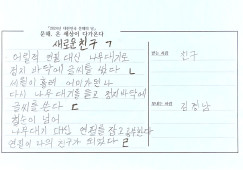 "2023년 대한민국 문해의 달,"
문해, 온 세상이 다가온다
새로운 친구 ㄱ
어릴적 연필 대신 나무대기로
검지 바닥에 글씨를 썼다 ㄴ
세월이 흘러 어미가 된 나
다시 나무대기를 들고 검지바닥에
글씨를 쓴다 ㄷ
칠순이 넘어
나무대기 대신 연필을 잡고 공부한다
연필이 나의 친구가 되었다 ㄹ
받는 사람
친구
보내는 사람
김정남